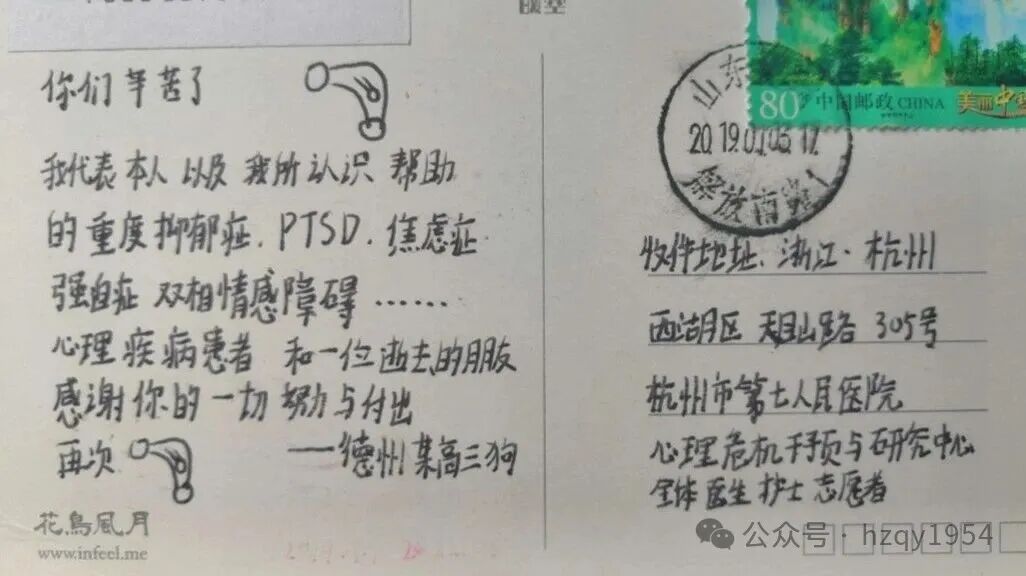 你们辛苦了
我代表本人以及我所认识帮助
的重度抑郁症.PTSD.焦虑症
强自症 双相情感障碍……
心理疾病患者 和一位逝去的朋友
感谢你的一切努力与付出
再次
——德州某高三狗
花鳥風月
www.infeel.me
80分 中国邮政 CHINA
美丽中国
山东
2019.01.03.17
解放南路1
收件地址:浙江·杭州
西湖区 天目山路 305号
杭州市第七人民医院
心理危机干预与研究中心
全体医生护士志愿者
公众号·hzqy1954